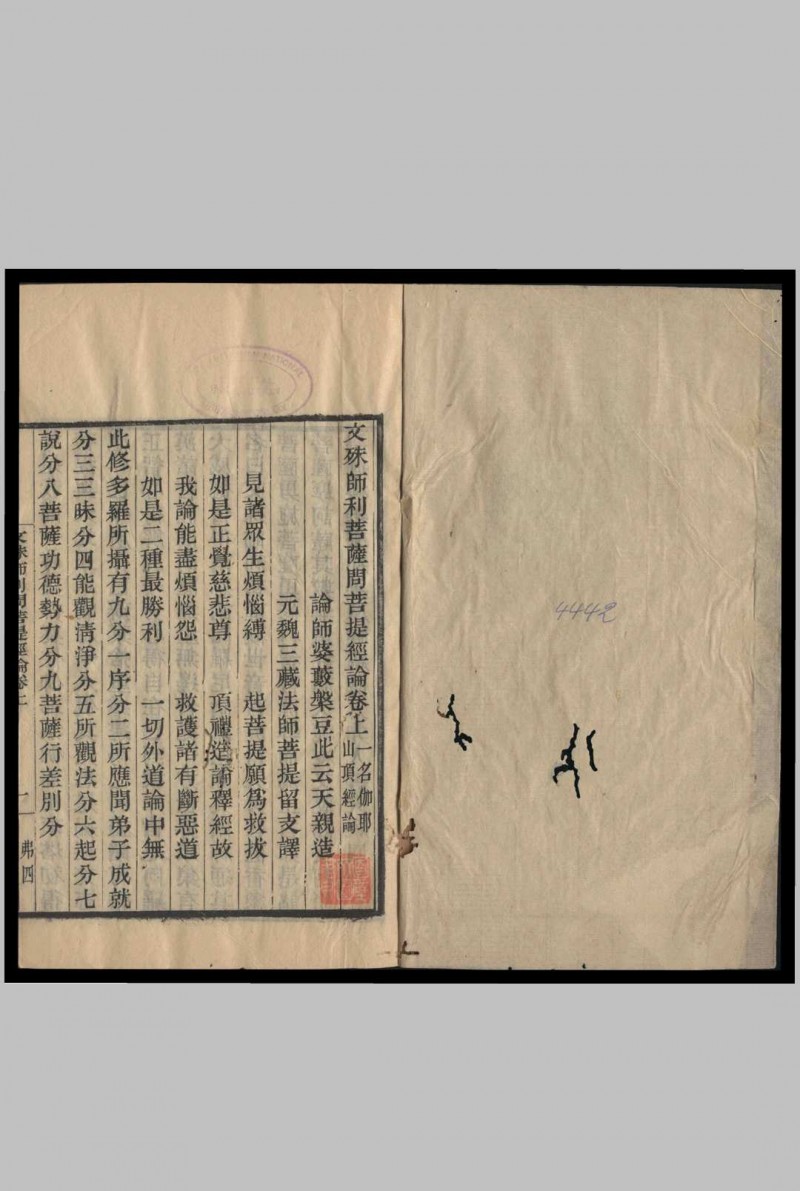 文殊師利菩薩問菩提經論卷上一名伽耶山頂經論
論師婆藪槃豆此云天親造
元魏三藏法師菩提留支譯
見諸眾生煩惱縛　起菩提願為救拔
如是正覺慈悲尊　頂禮造論釋經故
我論能盡煩惱怨　救護諸有斷惡道
如是二種最勝利　一切外道論中無
此修多羅所攝有九分一序分二所應聞弟子成就
分三三昧分四能觀清淨分五所觀法分六起分七
說分八菩薩功德勢力分九菩薩行差別分
文殊師利問菩提經論卷上　一　弗四
4442
NATIONAL